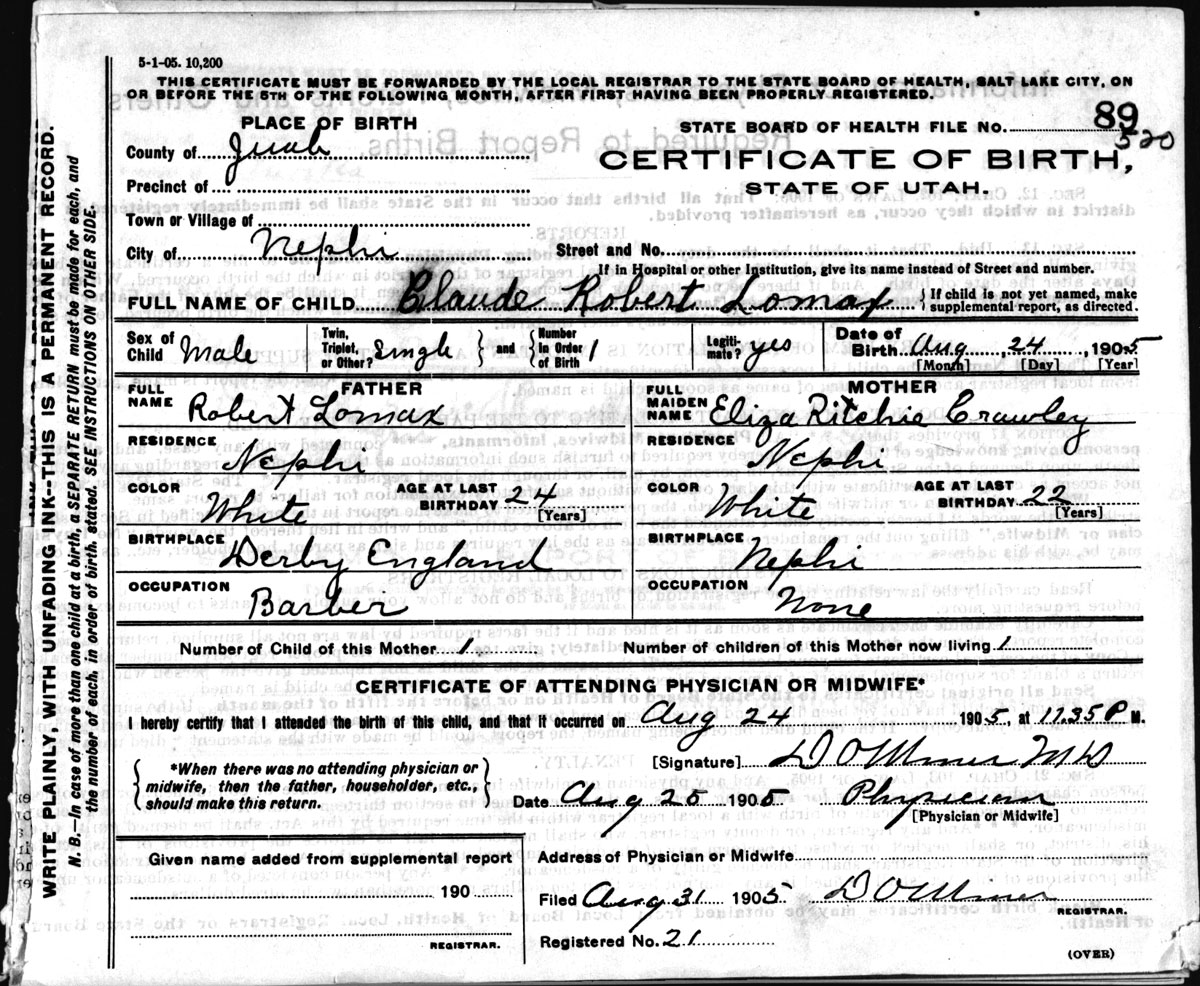 5-1-05. 10,200
THIS CERTIFICATE MUST BE FORWARDED BY THE LOCAL REGISTRAR TO THE STATE BOARD OF HEALTH, SALT LAKE CITY, ON
OR BEFORE THE 5TH OF THE FOLLOWING MONTH, AFTER FIRST HAVING BEEN PROPERLY REGISTERED.
PLACE OF BIRTH
County of Juab
Precinct of
Town or Village of
City of Nephi
STATE BOARD OF HEALTH FILE NO. 89
520
CERTIFICATE OF BIRTH,
STATE OF UTAH.
Street and No.
If in Hospital or other Institution, give its name instead of Street and number.
FULL NAME OF CHILD Claude Robert Lomax {If child is not yet named, make
supplemental report, as directed.
Sex of Child Male
Twin, Triplet, or Other? Single } and { Number In Order of Birth 1
Legitimate? yes
Date of Birth Aug 24, 1905
[Month] [Day] [Year]
FATHER
FULL NAME Robert Lomax
RESIDENCE Nephi
COLOR White AGE AT LAST BIRTHDAY 24
[Years]
BIRTHPLACE Derby England
OCCUPATION Barber
MOTHER
FULL MAIDEN NAME Eliza Ritchie Crawley
RESIDENCE Nephi
COLOR White AGE AT LAST BIRTHDAY 22
[Years]
BIRTHPLACE Nephi
OCCUPATION None
Number of Child of this Mother 1 Number of children of this Mother now living 1
CERTIFICATE OF ATTENDING PHYSICIAN OR MIDWIFE*
I hereby certify that I attended the birth of this child, and that it occurred on Aug 24 1905, at 11.35 P M.
*When there was no attending physician or
midwife, then the father, householder, etc.,
should make this return.
[Signature] D O Miner M D
Date Aug 25 1905 Physician
[Physician or Midwife]
Given name added from supplemental report
190
REGISTRAR.
Address of Physician or Midwife
Filed Aug 31 1905 D O Miner
REGISTRAR.
Registered No. 21
(OVER)
WRITE PLAINLY, WITH UNFADING INK--THIS IS A PERMANENT RECORD.
N. B.—In case of more than one child at a birth, a SEPARATE RETURN must be made for each, and
the number of each, in order of birth, stated. SEE INSTRUCTIONS ON OTHER SIDE.